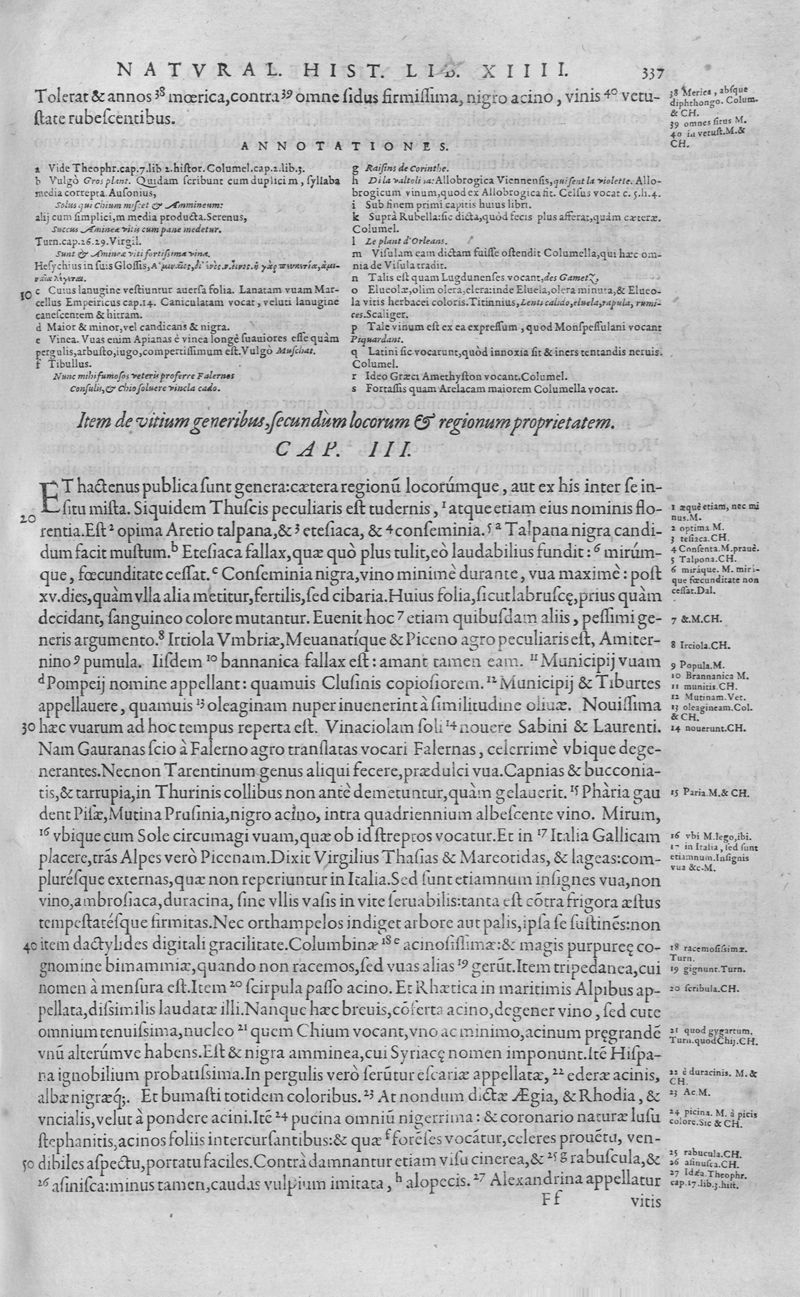 NATVRAL. HIST. LIB. XIIII. 337
Tolerat & annos ³⁸ mœrica, contra ³⁹ omne ſidus firmiſſima, nigro acino, vinis ⁴⁰ vetu-
ſtate rubeſcentibus.
38 Merica, abſque
diphthongo. Colum.
& CH.
39 omnes ſitus M.
40 in vetuſt. M. &
CH.
ANNOTATIONES.
a Vide Theophr. cap. 7. lib 2. hiſtor. Columel. cap. 2. lib. 3.
b Vulgò Gros plant. Quidam ſcribunt cum duplici m, ſyllaba
media correpta Auſonius,
Solus qui Chium miſcet & Ammineum:
alij cum ſimplici, m media producta. Serenus,
Succus Amineæ vitis cum pane medetur.
Turn. cap. 26. 29. Virgil.
Sunt & Amineæ viti fortiſsima vina.
Heſychius in ſuis Gloſſis,
c Cuius lanugine veſtiuntur auerſa folia. Lanatam vuam Mar-
10
cellus Empeiricus cap. 14. Caniculatam vocat, veluti lanugine
caneſcentem & hirtam.
d Maior & minor, vel candicans & nigra.
e Vinea. Vuas enim Apianas è vinea longè ſuauiores eſſe quàm
pergulis, arbuſto, iugo, compertiſſimum eſt. Vulgò Muſchat.
f Tibullus.
Nunc mihi fumoſos veteris proferre Falernos
Conſulis, & Chio ſoluere vincla cado.
g Raiſins de Corinthe.
h Di la valtolina: Allobrogica Viennenſis, qui ſent la violette. Allo-
brogicum vinum, quod ex Allobrogica fit. Celſus vocat c. 5. li. 4.
i Sub finem primi capitis huius libri.
k Suprà Rubella: ſic dicta, quòd fecis plus afferat, quàm cæteræ.
Columel.
l Le plant d'Orleans.
m Viſulam eam dictam fuiſſe oſtendit Columella, qui hæc om-
nia de Viſula tradit.
n Talis eſt quam Lugdunenſes vocant, des Gametz,
o Elueolæ, olim olera, elera: inde Eluela, olera minuta, & Eluco-
la vitis herbacei coloris. Titinnius, Lents calido, eluela, rapula, rumi-
ces. Scaliger.
p Tale vinum eſt ex ea expreſſum, quod Monſpeſſulani vocant
Piquardant.
q Latini ſic vocarunt, quòd innoxia ſit & iners tentandis neruis.
Columel.
r Ideo Græci Amethyſton vocant. Columel.
s Fortaſſis quam Arelacam maiorem Columella vocat.
Item de vitium generibus, ſecundùm locorum & regionum proprietatem.
CAP. III.
ET hactenus publica ſunt genera: cætera regionũ locorúmque, aut ex his inter ſe in-
ſitu miſta. Siquidem Thuſcis peculiaris eſt tudernis, ¹ atque etiam eius nominis flo-
20
rentia. Eſt ² opima Aretio talpana, & ³ eteſiaca, & ⁴ conſeminia. ⁵ ᵃ Talpana nigra candi-
dum facit muſtum. ᵇ Eteſiaca fallax, quæ quò plus tulit, eò laudabilius fundit: ⁶ mirúm-
que, fœcunditate ceſſat. ᶜ Conſeminia nigra, vino minimè durante, vua maximè: poſt
xv. dies, quàm vlla alia metitur, fertilis, ſed cibaria. Huius folia, ſicut labruſcę, prius quàm
decidant, ſanguineo colore mutantur. Euenit hoc ⁷ etiam quibuſdam aliis, peſſimi ge-
neris argumento. ⁸ Irtiola Vmbriæ, Meuanatíque & Piceno agro peculiaris eſt, Amiter-
nino ⁹ pumula. Iiſdem ¹⁰ bannanica fallax eſt: amant tamen eam. ¹¹ Municipij vuam
ᵈ Pompeij nomine appellant: quamuis Cluſinis copioſiorem. ¹² Municipij & Tiburtes
appellauere, quamuis ¹³ oleaginam nuper inuenerint à ſimilitudine oliuæ. Nouiſſima
30 hæc vuarum ad hoc tempus reperta eſt. Vinaciolam ſoli ¹⁴ nouere Sabini & Laurenti.
Nam Gauranas ſcio à Falerno agro tranſlatas vocari Falernas, celerrimè vbique dege-
nerantes. Necnon Tarentinum genus aliqui fecere, prædulci vua. Capnias & bucconia-
tis, & tarrupia, in Thurinis collibus non antè demetuntur, quàm gelauerit. ¹⁵ Pharia gau
dent Piſæ, Mutina Pruſinia, nigro acino, intra quadriennium albeſcente vino. Mirum,
¹⁶ vbique cum Sole circumagi vuam, quæ ob id ſtreptos vocatur. Et in ¹⁷ Italia Gallicam
placere, trãs Alpes verò Picenam. Dixit Virgilius Thaſias & Mareotidas, & lageas: com-
pluréſque externas, quæ non reperiuntur in Italia. Sed ſunt etiamnum inſignes vua, non
vino, ambroſiaca, duracina, ſine vllis vaſis in vite ſeruabilis: tanta eſt cõtra frigora æſtus
tempeſtatéſque firmitas. Nec orthampelos indiget arbore aut palis, ipſa ſe ſuſtinẽs: non
40 item dactylides digitali gracilitate. Columbinæ ¹⁸ ᵉ acinoſiſſimæ: & magis purpureę co-
gnomine bimammiæ, quando non racemos, ſed vuas alias ¹⁹ gerũt. Item tripedanea, cui
nomen à menſura eſt. Item ²⁰ ſcirpula paſſo acino. Et Rhætica in maritimis Alpibus ap-
pellata, diſsimilis laudatæ illi. Nanque hæc breuis, cõferta acino, degener vino, ſed cute
omnium tenuiſsima, nucleo ²¹ quem Chium vocant, vno ac minimo, acinum pręgrandẽ
vnũ alterúmve habens. Eſt & nigra amminea, cui Syriacę nomen imponunt. Itẽ Hiſpa-
na ignobilium probatiſsima. In pergulis verò ſerũtur eſcariæ appellatæ, ²² ederæ acinis,
albæ nigræq́;. Et bumaſti totidem coloribus. ²³ At nondum dictæ Ægia, & Rhodia, &
vncialis, velut à pondere acini. Itẽ ²⁴ pucina omniũ nigerrima: & coronario naturæ luſu
ſtephanitis, acinos foliis intercurſantibus: & quæ ᶠ forẽſes vocãtur, celeres prouẽtu, ven-
50 dibiles aſpectu, portatu faciles. Contrà damnantur etiam viſu cinerea, & ²⁵ ᵍ rabuſcula, &
²⁶ aſiniſca: minus tamen, caudas vulpium imitata, ʰ alopecis. ²⁷ Alexandrina appellatur
Ff vitis
1 æquè etiam, nec mi
nus. M.
2 optima M.
3 teſiaca. CH.
4 Conſenta. M. prauè.
5 Talpona. CH.
6 miráque. M. miri-
que fœcunditate non
ceſſat. Dal.
7 &. M. CH.
8 Irciola. CH.
9 Popula. M.
10 Brannanica M.
11 munitis. CH.
12 Mutinam. Vet.
13 oleagineam. Col.
& CH.
14 nouerunt. CH.
15 Paria. M. & CH.
16 vbi M. lego, ibi.
17 in Italia, ſed ſunt
etiamnum. Inſignis
vua &c. M.
18 racemoſiſsimæ.
Turn.
19 gignunt. Turn.
20 ſcribula. CH.
21 quod gygartum.
Turn. quod Chij. CH.
22 è duracinis. M. &
CH.
23 Ac M.
24 picina. M. à picis
colore. Sic & CH.
25 rabucula. CH.
26 aſinuſca. CH.
27 Idæa. Theophr.
cap. 17. lib. 3. hiſt.